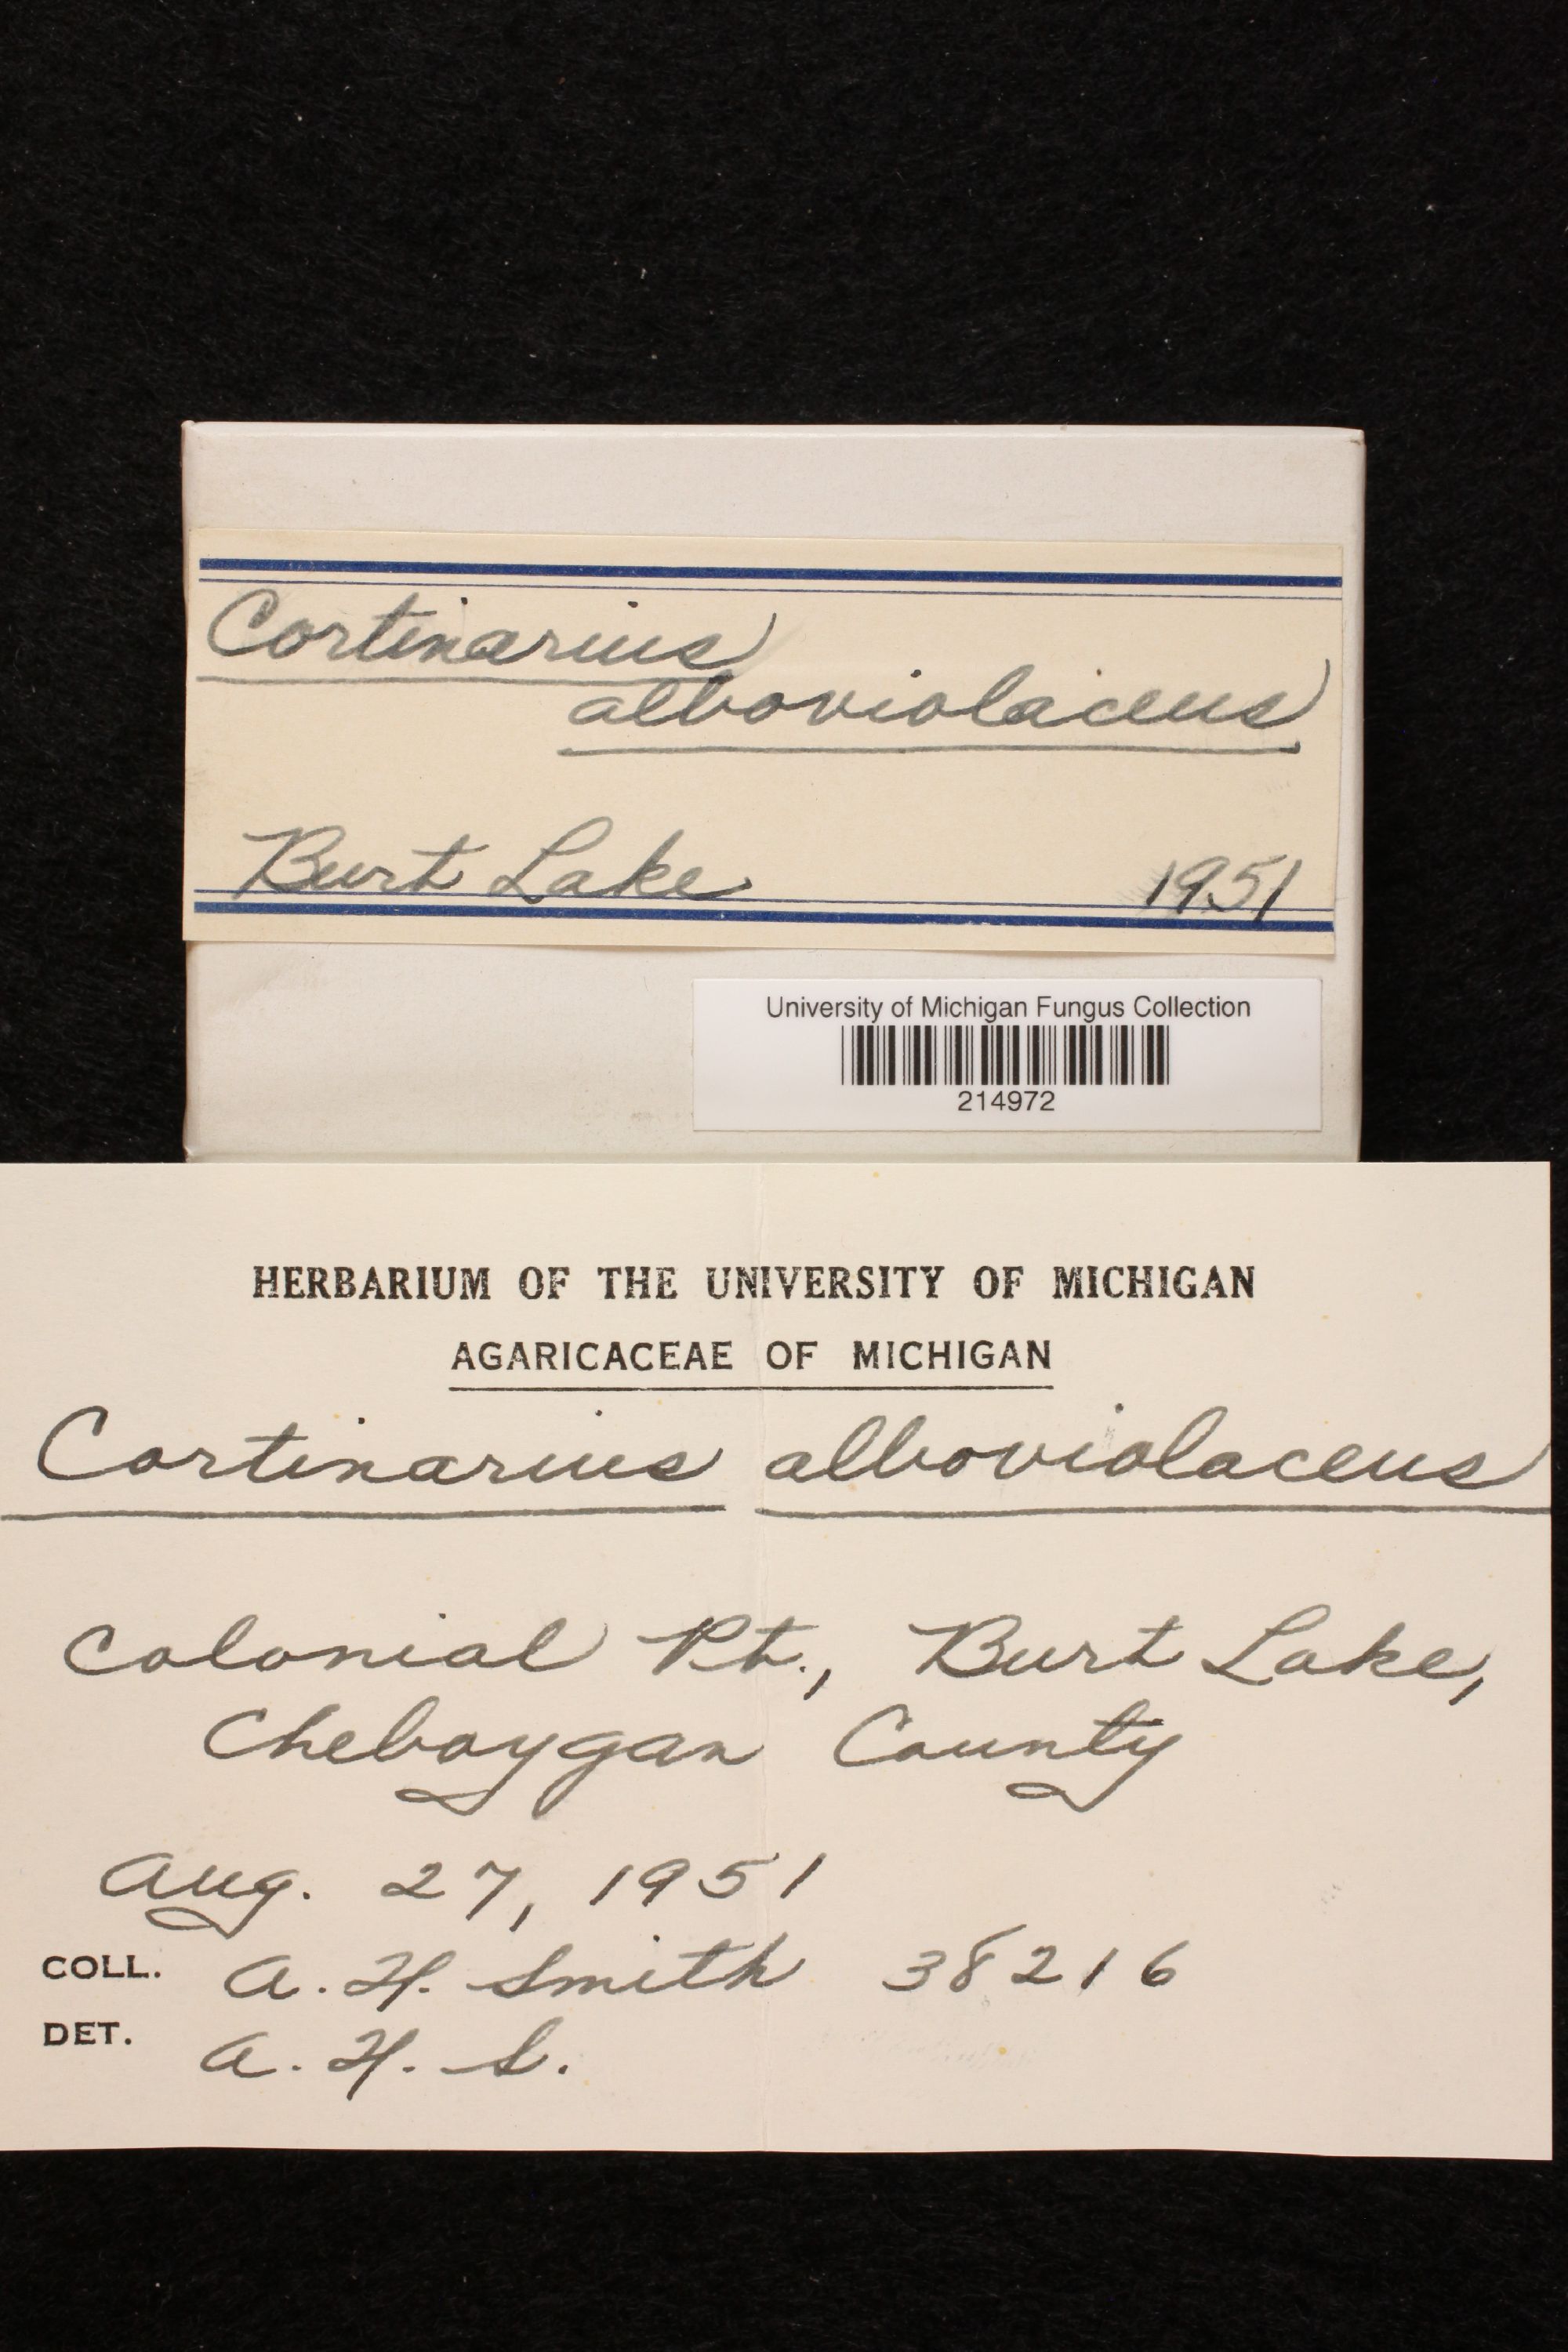 Cortinarius
alboviolaceus
Burt Lake 1951
University of Michigan Fungus Collection
214972
HERBARIUM OF THE UNIVERSITY OF MICHIGAN
AGARICACEAE OF MICHIGAN
Cortinarius alboviolaceus
Colonial Pt., Burt Lake,
Cheboygan County
Aug. 27, 1951
COLL. A. H. Smith 38216
DET. A. H. S.